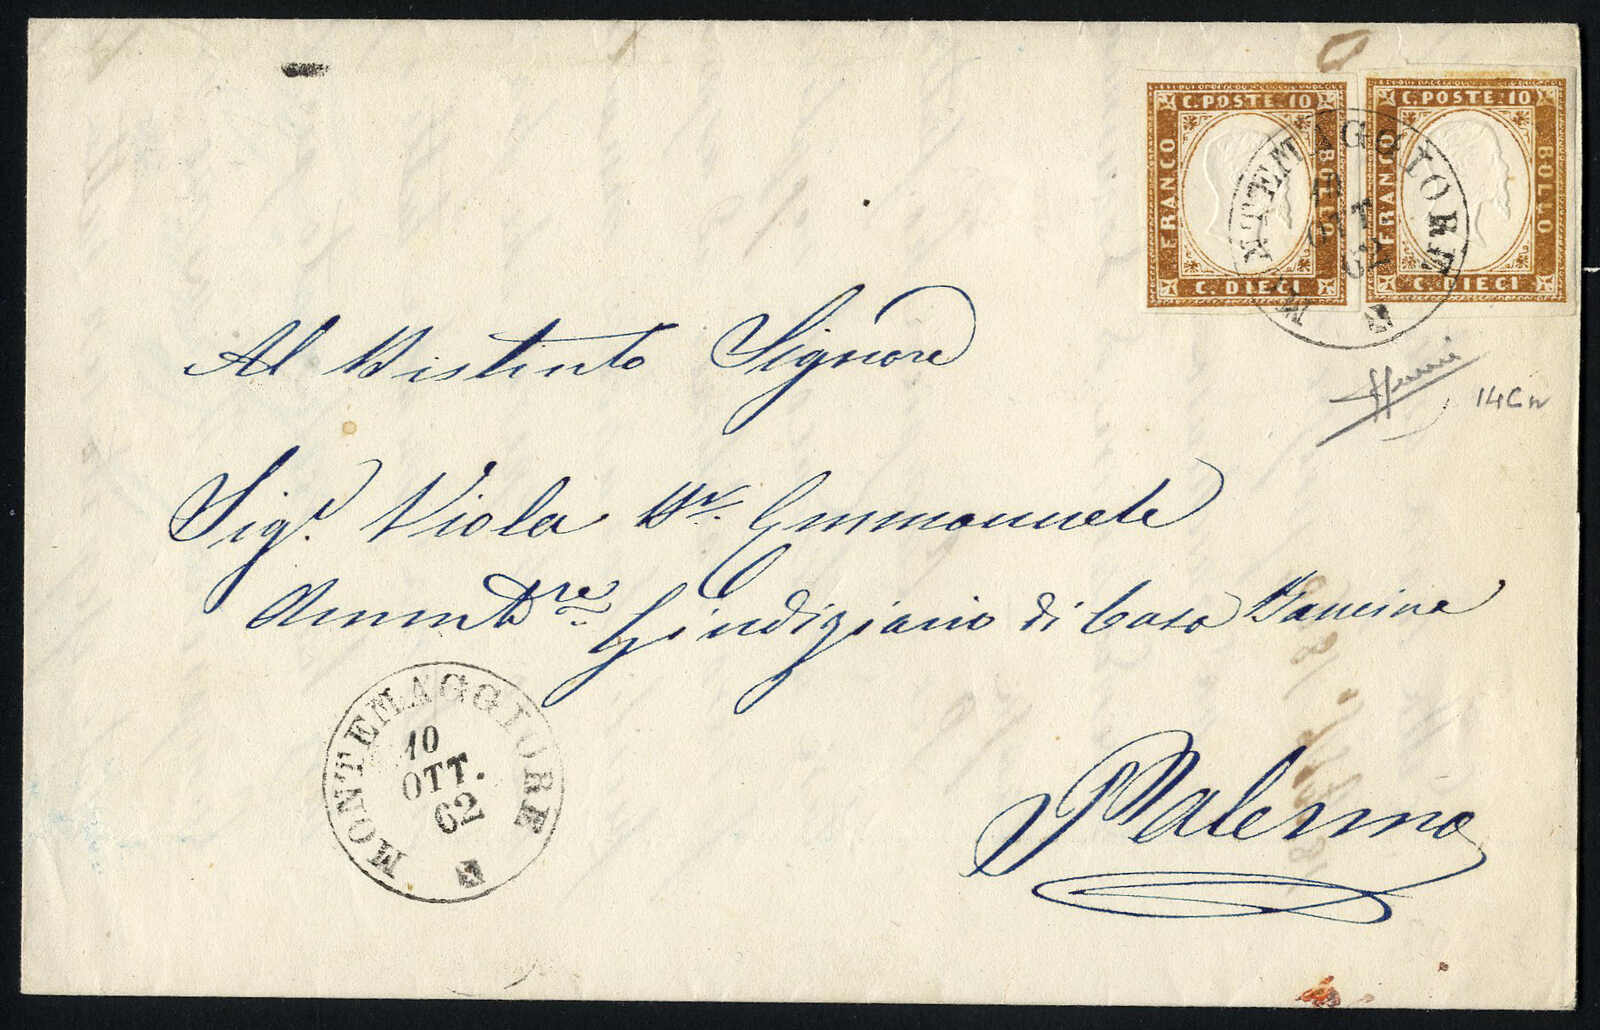 C. POSTE. 10
FRANCO
BOLLO
C. DIECI
C. POSTE. 10
FRANCO
BOLLO
C. DIECI
MONTEMAGGIORE
10
OTT.
62
14Cn
Al Distinto Signore
Sigr. Viola Dr. Emmanuele
Ammtre Giudiziario di Casa
Palermo
MONTEMAGGIORE
10
OTT.
62